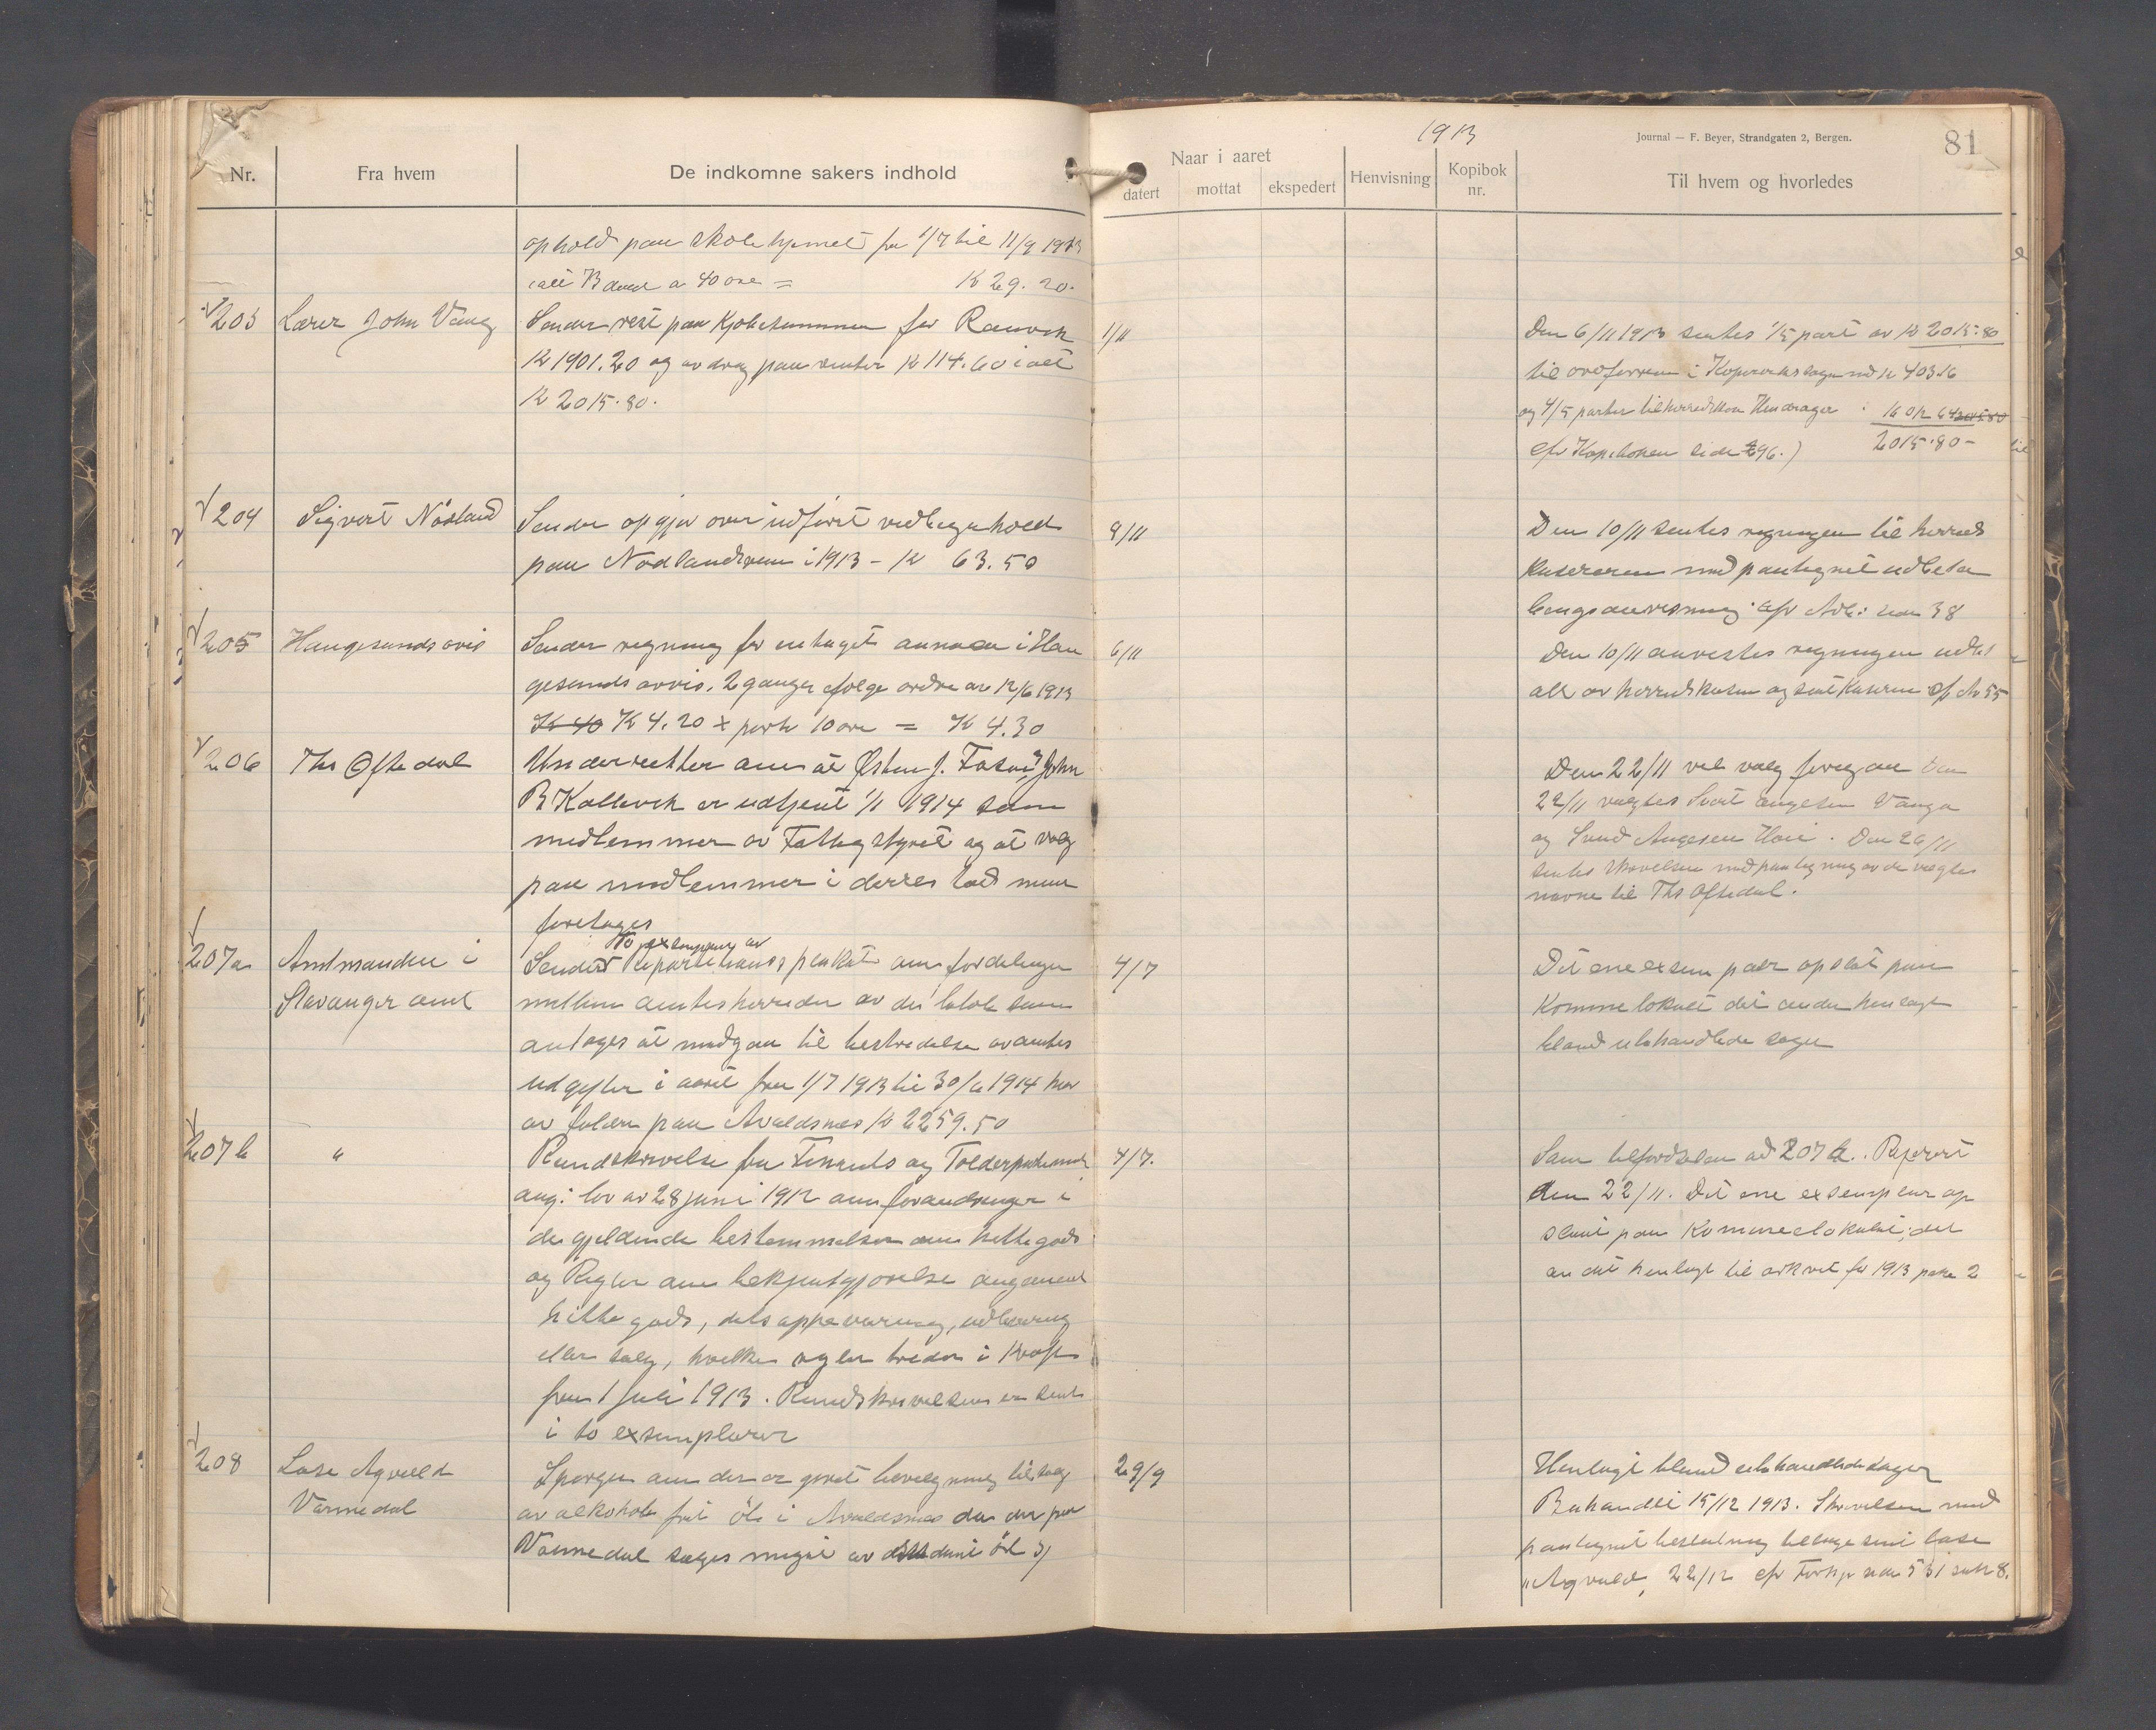 1913
Journal — F. Beyer, Strandgaten 2, Bergen.
81
Nr.
Fra hvem
De indkomne sakers indhold
Naar i aaret
datert
mottat
ekspedert
Henvisning
Kopibok nr.
Til hvem og hvorledes
ophold paa skolehjemmet fra 1/7 til 11/9 1913
ialt 73 a 40 øre = K 29.20.
203
Lærer John Vang
Sender rest paa Kjøbesummen for
K 1901.20 og avdrag paa renter K 114.60 ialt
K 2015.80.
1/11
Den 6/11 1913 sendtes 1/5 part av K 2015.80
til i Kopervik med K 403.16
og 4/5 parter til
2015.80-
cfr Kopiboken side 296.)
204
Sigvert Nösland
Sender opgjør over udført vedligehold
paa i 1913 - K 63.50
9/11
Den 10/11 sendtes regningen til herreds
kassereren med paategnet udbeta
lingsanvisning cfr side 38
205
Haugesunds avis
Sender regning for indtaget annonse i Hau
gesunds avis. 2 ganger ifølge ordre av 12/6 1913
K 40 K 4.20 + porto 10 øre = K 4.30
6/11
Den 10/11 anvistes regningen udbet
alt av herredskassen og sent cfr 55
206
Ths Oftedal
Underretter om at Østen J. og John
B Kallevik er udtjent 1/1 1914 som
medlemmer av Fattigstyret og at valg
paa medlemmer i deres sted maa
foretages
Den 22/11 vil valg foregaa Den
22/11 valgtes Vaaga
og Svend Aagesen . Den 26/11
sendtes skrivelsen med paategning av de valgtes
navne til Ths Oftedal.
207a
Amtmanden i
Stavanger amt
to exemplarer av
Sender Repartitionsplakat om fordelingen
mellem amtets herreder av det beløb som
antages at medgaa til bestridelse av amtets
udgifter i aaret fra 1/7 1913 til 30/6 1914 hvor
av falder paa Avaldsnes K 2259.50
4/7
Det ene exemplar opslaat paa
Kommunelokalet det andet henlagt
bland ubehandlede sager
207b
"
Rundskrivelse fra Finants og Tolddepartementet
ang: lov av 28 juni 1912 om forandringer i
de gjeldende bestemmelser om hittegods
og Regler om bekjentgjørelse angaaende
hittegods, dets oppevaring, udlevering
eller salg, hvilke regler træder i kraft
fra 1 Juli 1913. Rundskrivelsen er sendt
i to exemplarer
4/7.
Som 207a.
den 22/11. Det ene exemplar op
slaat paa Kommunelokalet; det
andet henlagt til arkivet for 1913 pakke 2
208
Lose Agvald
Varnedal
Spørger om der er givet bevilgning til salg
av alkoholfrit øl i Avaldsnes da der paa
Vormedal sælges meget av dette øl
29/9
Henlagt bland ubehandlede sager
Behandlet 15/12 1913. Skrivelsen med
paategnet beslutning tilbagesent Lose
"Agvald" 22/12 cfr side 531 sak 8.